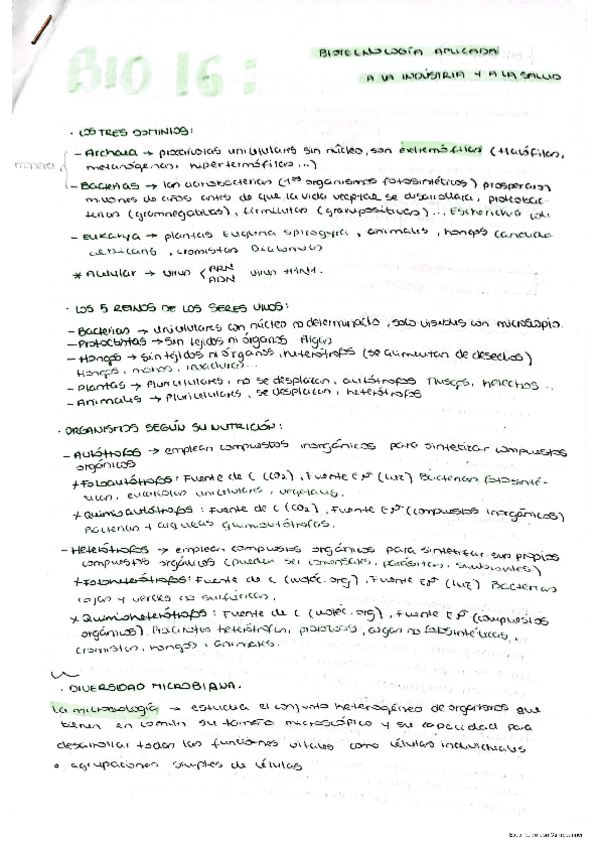 BIO 16:
BIOTECNOLOGÍA APLICADA
A LA INDÚSTRIA Y A LA SALUD
· LOS TRES DOMINIOS:
- Archaea → procariotas unicelulares sin núcleo, son extremófilas (halófilas,
metanógenas, hipertermófilas...)
monera
- Bacterias → las cianobacterias (1os organismos fotosintéticos) prosperaron
millones de años antes de que la vida vegetal se desarrollara, proteobac-
terias (gramnegativas), firmicutas (grampositivas)... Escherichia coli
- Eukarya → plantas Euglena spirogyra, animales, hongos Candida
albicans, cromistas Diatomeas
* Acelular → virus { ARN ADN virus H1N1.
· LOS 5 REINOS DE LOS SERES VIVOS:
- Bacterias → unicelulares con núcleo no determinado, solo visibles con microscopio.
- Protoctistas → sin tejidos ni órganos Algas
- Hongos → sin tejidos ni órganos, heterótrofos (se alimentan de desechos)
Hongos, mohos, levaduras...
- Plantas → Pluricelulares, no se desplazan, autótrofos Musgos, helechos...
- Animales → Pluricelulares, se desplazan, heterótrofos
· ORGANISMOS SEGÚN SU NUTRICIÓN:
- Autótrofos → emplean compuestos inorgánicos para sintetizar compuestos
orgánicos
* Fotoautótrofos: Fuente de C (CO2), Fuente Eª (luz) Bacterias fotosinté-
ticas, eucariotas unicelulares, vegetales.
* Quimioautótrofos: Fuente de C (CO2), Fuente Eª (compuestos inorgánicos)
Bacterias + arqueas quimioautótrofas.
- Heterótrofos → emplean compuestos orgánicos para sintetizar sus propios
compuestos orgánicos (pueden ser comensales, parásitos, simbiontes)
* Fotoheterótrofos: Fuente de C (moléc. org), Fuente Eª (luz) Bacterias
rojas y verdes no sulfúricas.
* Quimioheterótrofos: Fuente de C (moléc. org), Fuente Eª (compuestos
orgánicos) Procariotas heterótrofas, protozoos, algas no fotosintéticas,
cromistas, hongos, animales.
· DIVERSIDAD MICROBIANA.
La microbiología → estudia el conjunto heterogéneo de organismos que
tienen en común su tamaño microscópico y su capacidad para
desarrollar todas las funciones vitales como células individuales
o agrupaciones simples de células
Escaneado con CamScanner